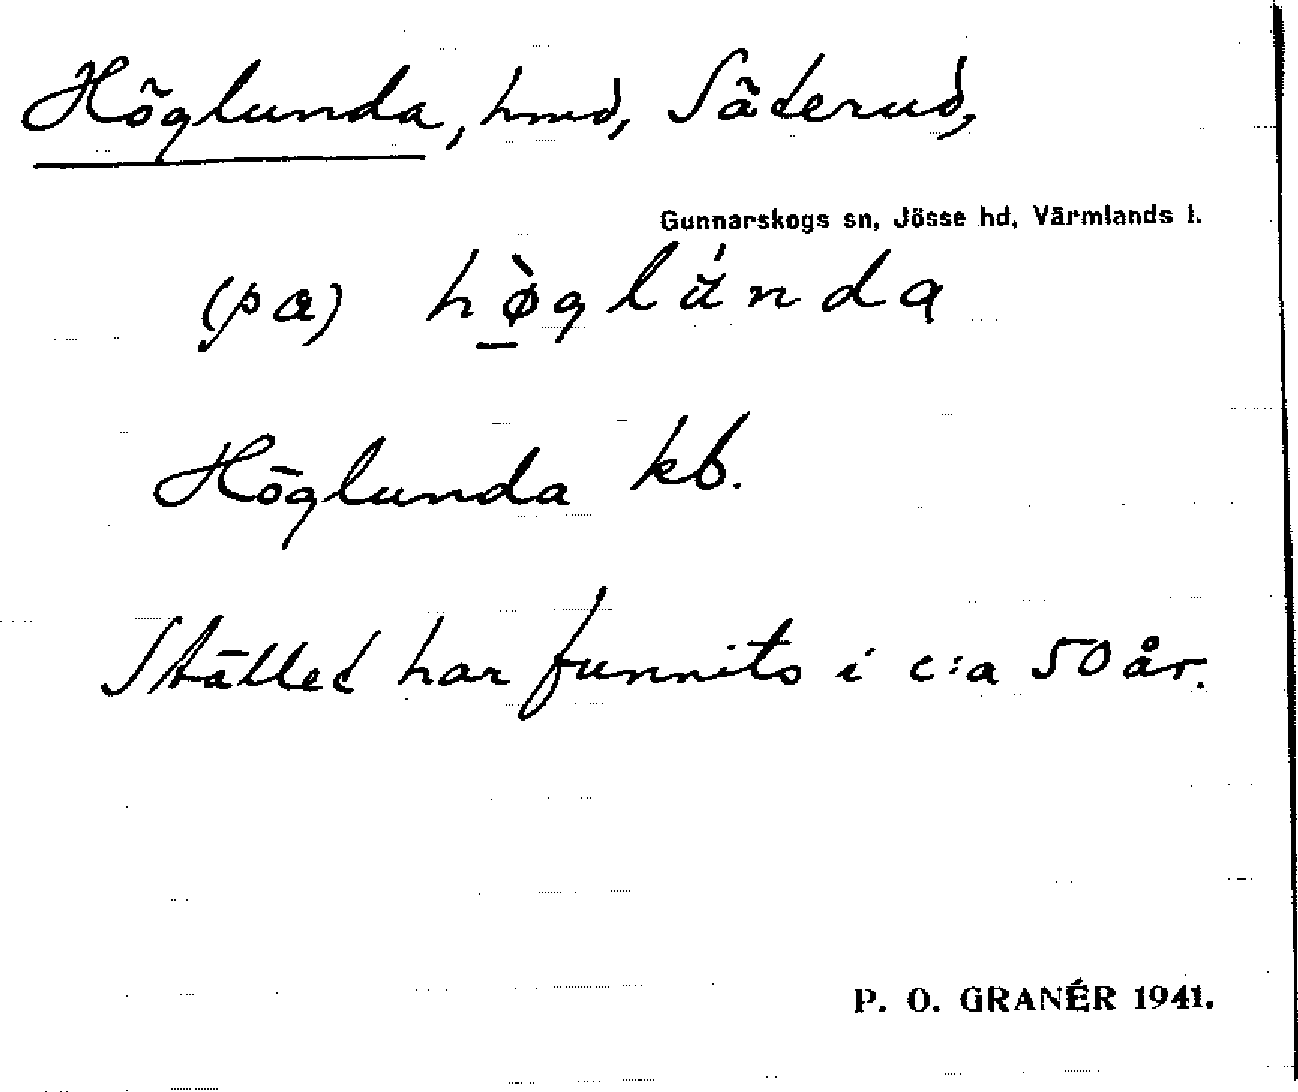 Höglunda, hmd, Säterud,
Gunnarskogs sn, Jösse hd, Värmlands l.
(pa) hø̀glúnda
Höglunda kb.
Stället har funnits i c:a 50 år.
P. O. GRANÉR 1941.